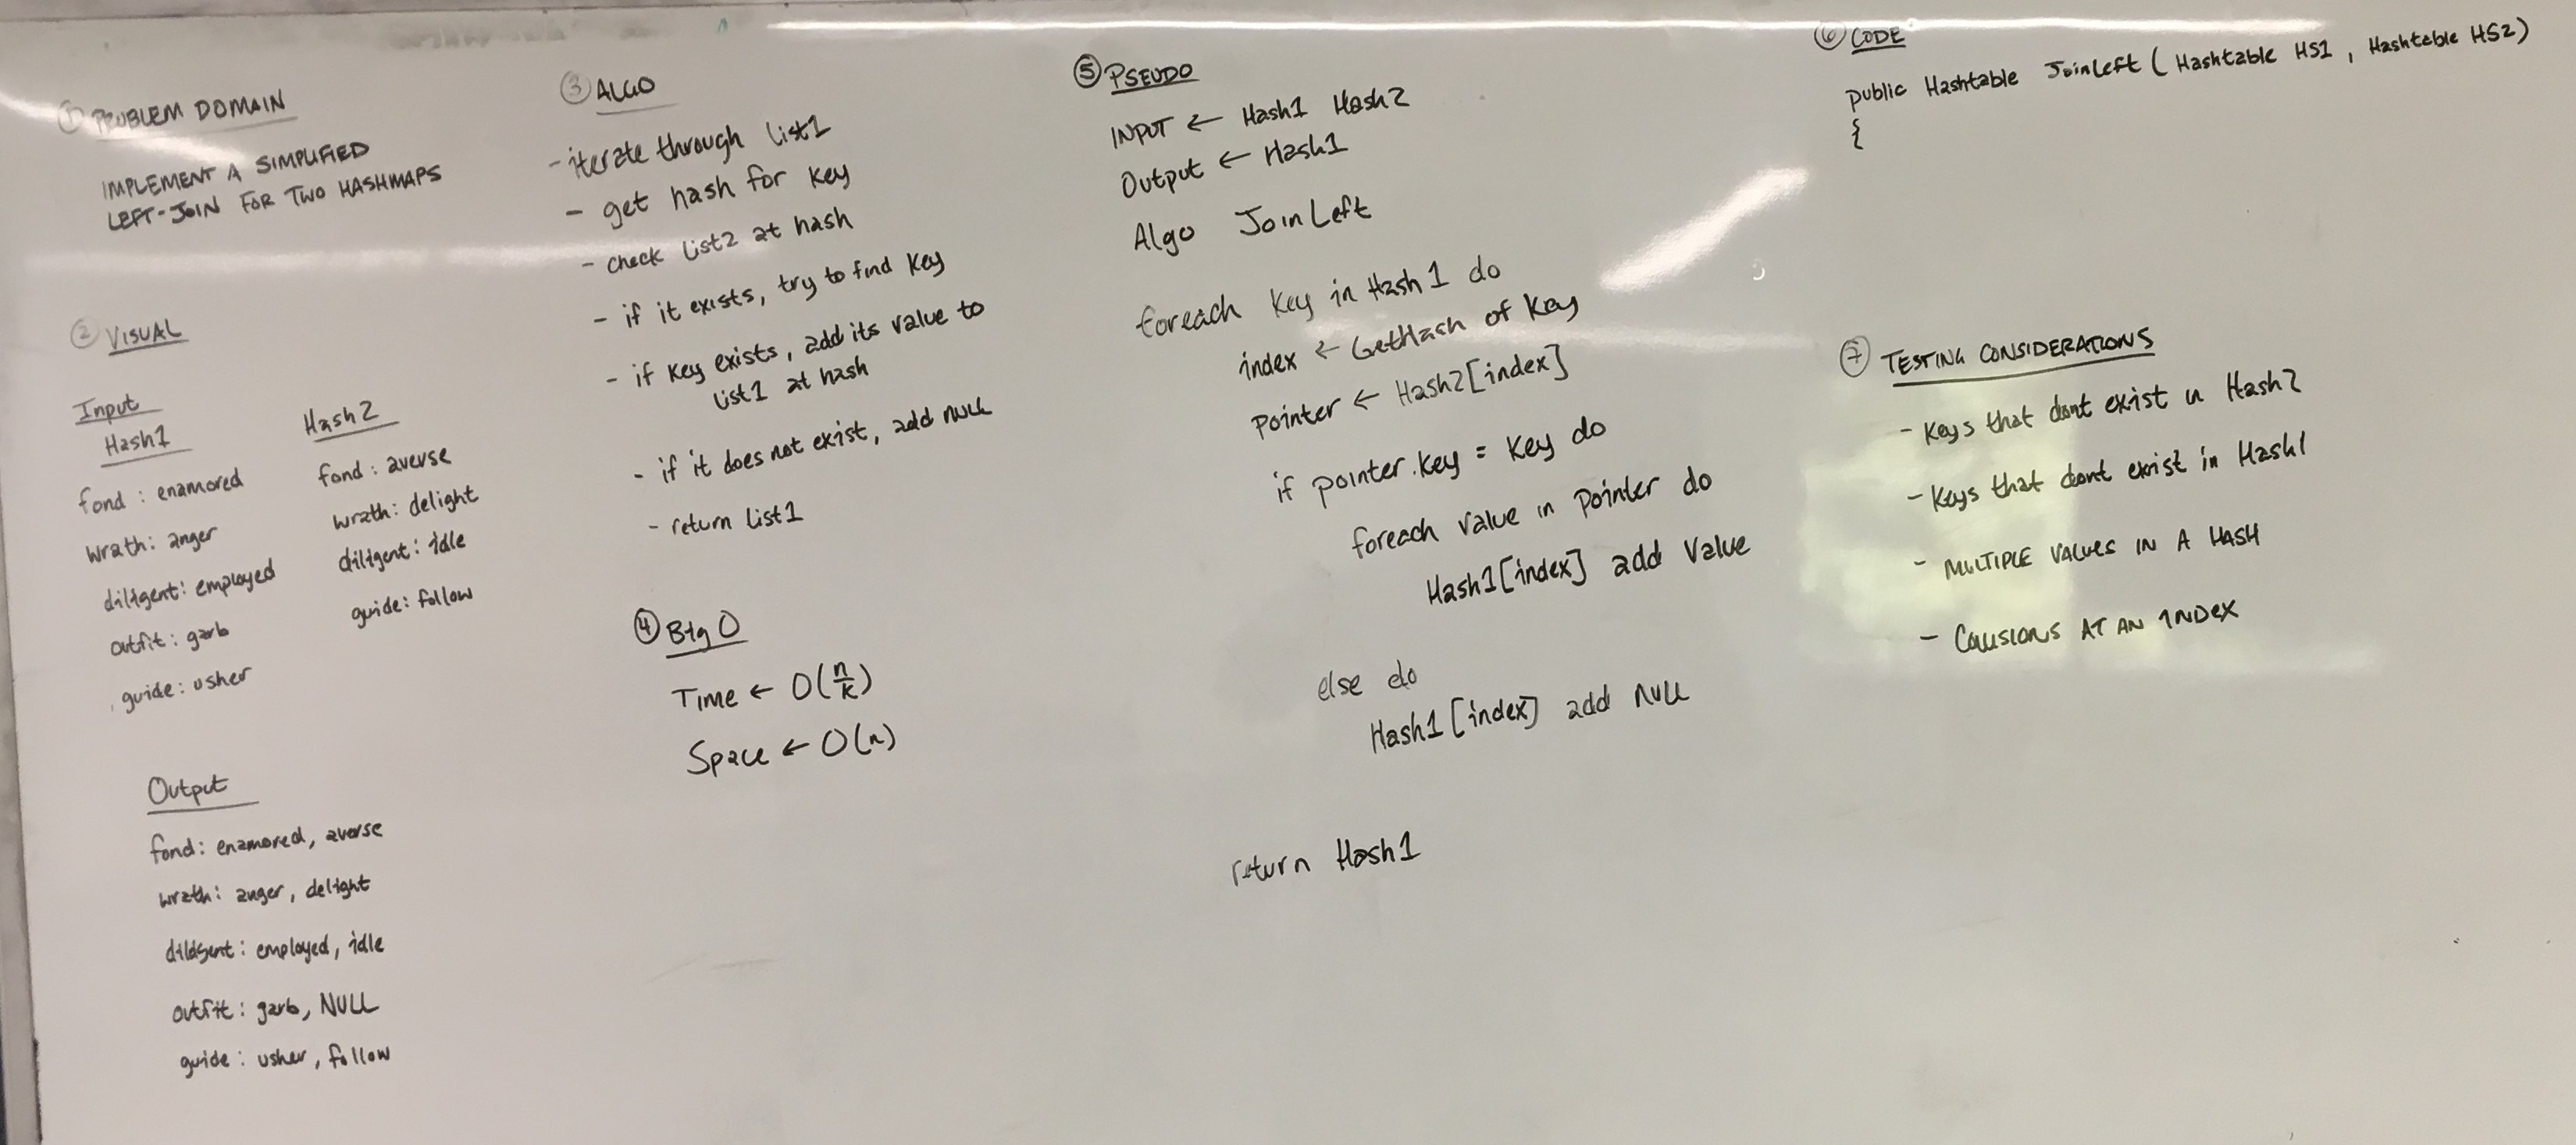 ① PROBLEM DOMAIN
IMPLEMENT A SIMPLIFIED
LEFT-JOIN FOR TWO HASHMAPS
② VISUAL
Input
Hash1
fond : enamored
wrath: anger
diligent: employed
outfit: garb
guide: usher
Hash2
fond : averse
wrath: delight
diligent: idle
guide: follow
Output
fond: enamored, averse
wrath: anger, delight
diligent: employed, idle
outfit: garb, NULL
guide: usher, follow
③ ALGO
- iterate through list1
- get hash for key
- check list2 at hash
- if it exists, try to find key
- if key exists, add its value to
list1 at hash
- if it does not exist, add NULL
- return list1
④ Big O
Time ← O(n/k)
Space ← O(n)
⑤ PSEUDO
INPUT ← Hash1 Hash2
Output ← Hash1
Algo JoinLeft
foreach key in Hash1 do
index ← GetHash of key
Pointer ← Hash2[index]
if pointer.key = key do
foreach value in pointer do
Hash1[index] add value
else do
Hash1[index] add NULL
return Hash1
⑥ CODE
public Hashtable JoinLeft ( Hashtable HS1 , Hashtable HS2 )
{
⑦ TESTING CONSIDERATIONS
- Keys that dont exist in Hash2
- Keys that dont exist in Hash1
- MULTIPLE VALUES IN A HASH
- COLLISIONS AT AN INDEX